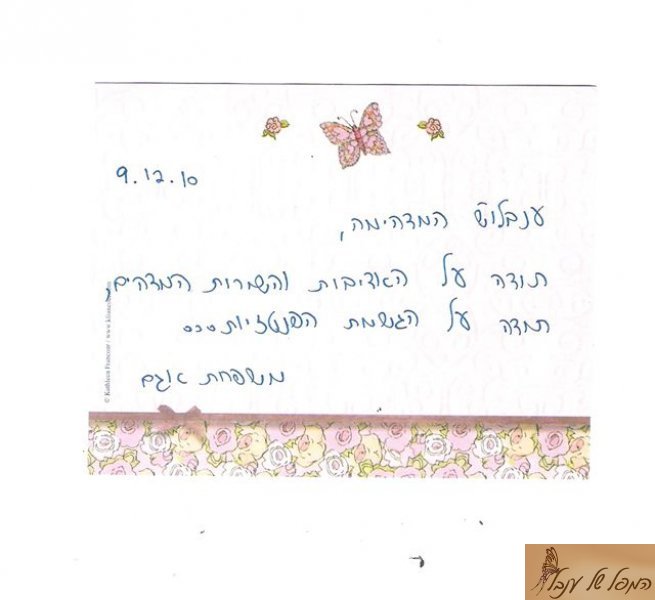 9.12.10
ענבלוש המדהימה,
תודה על האדיבות והשרות המדהים,
תודה על הגשמת הפנטזיות...
משפחת אגם
© Kathleen Francour / www.
המפל של ענבל